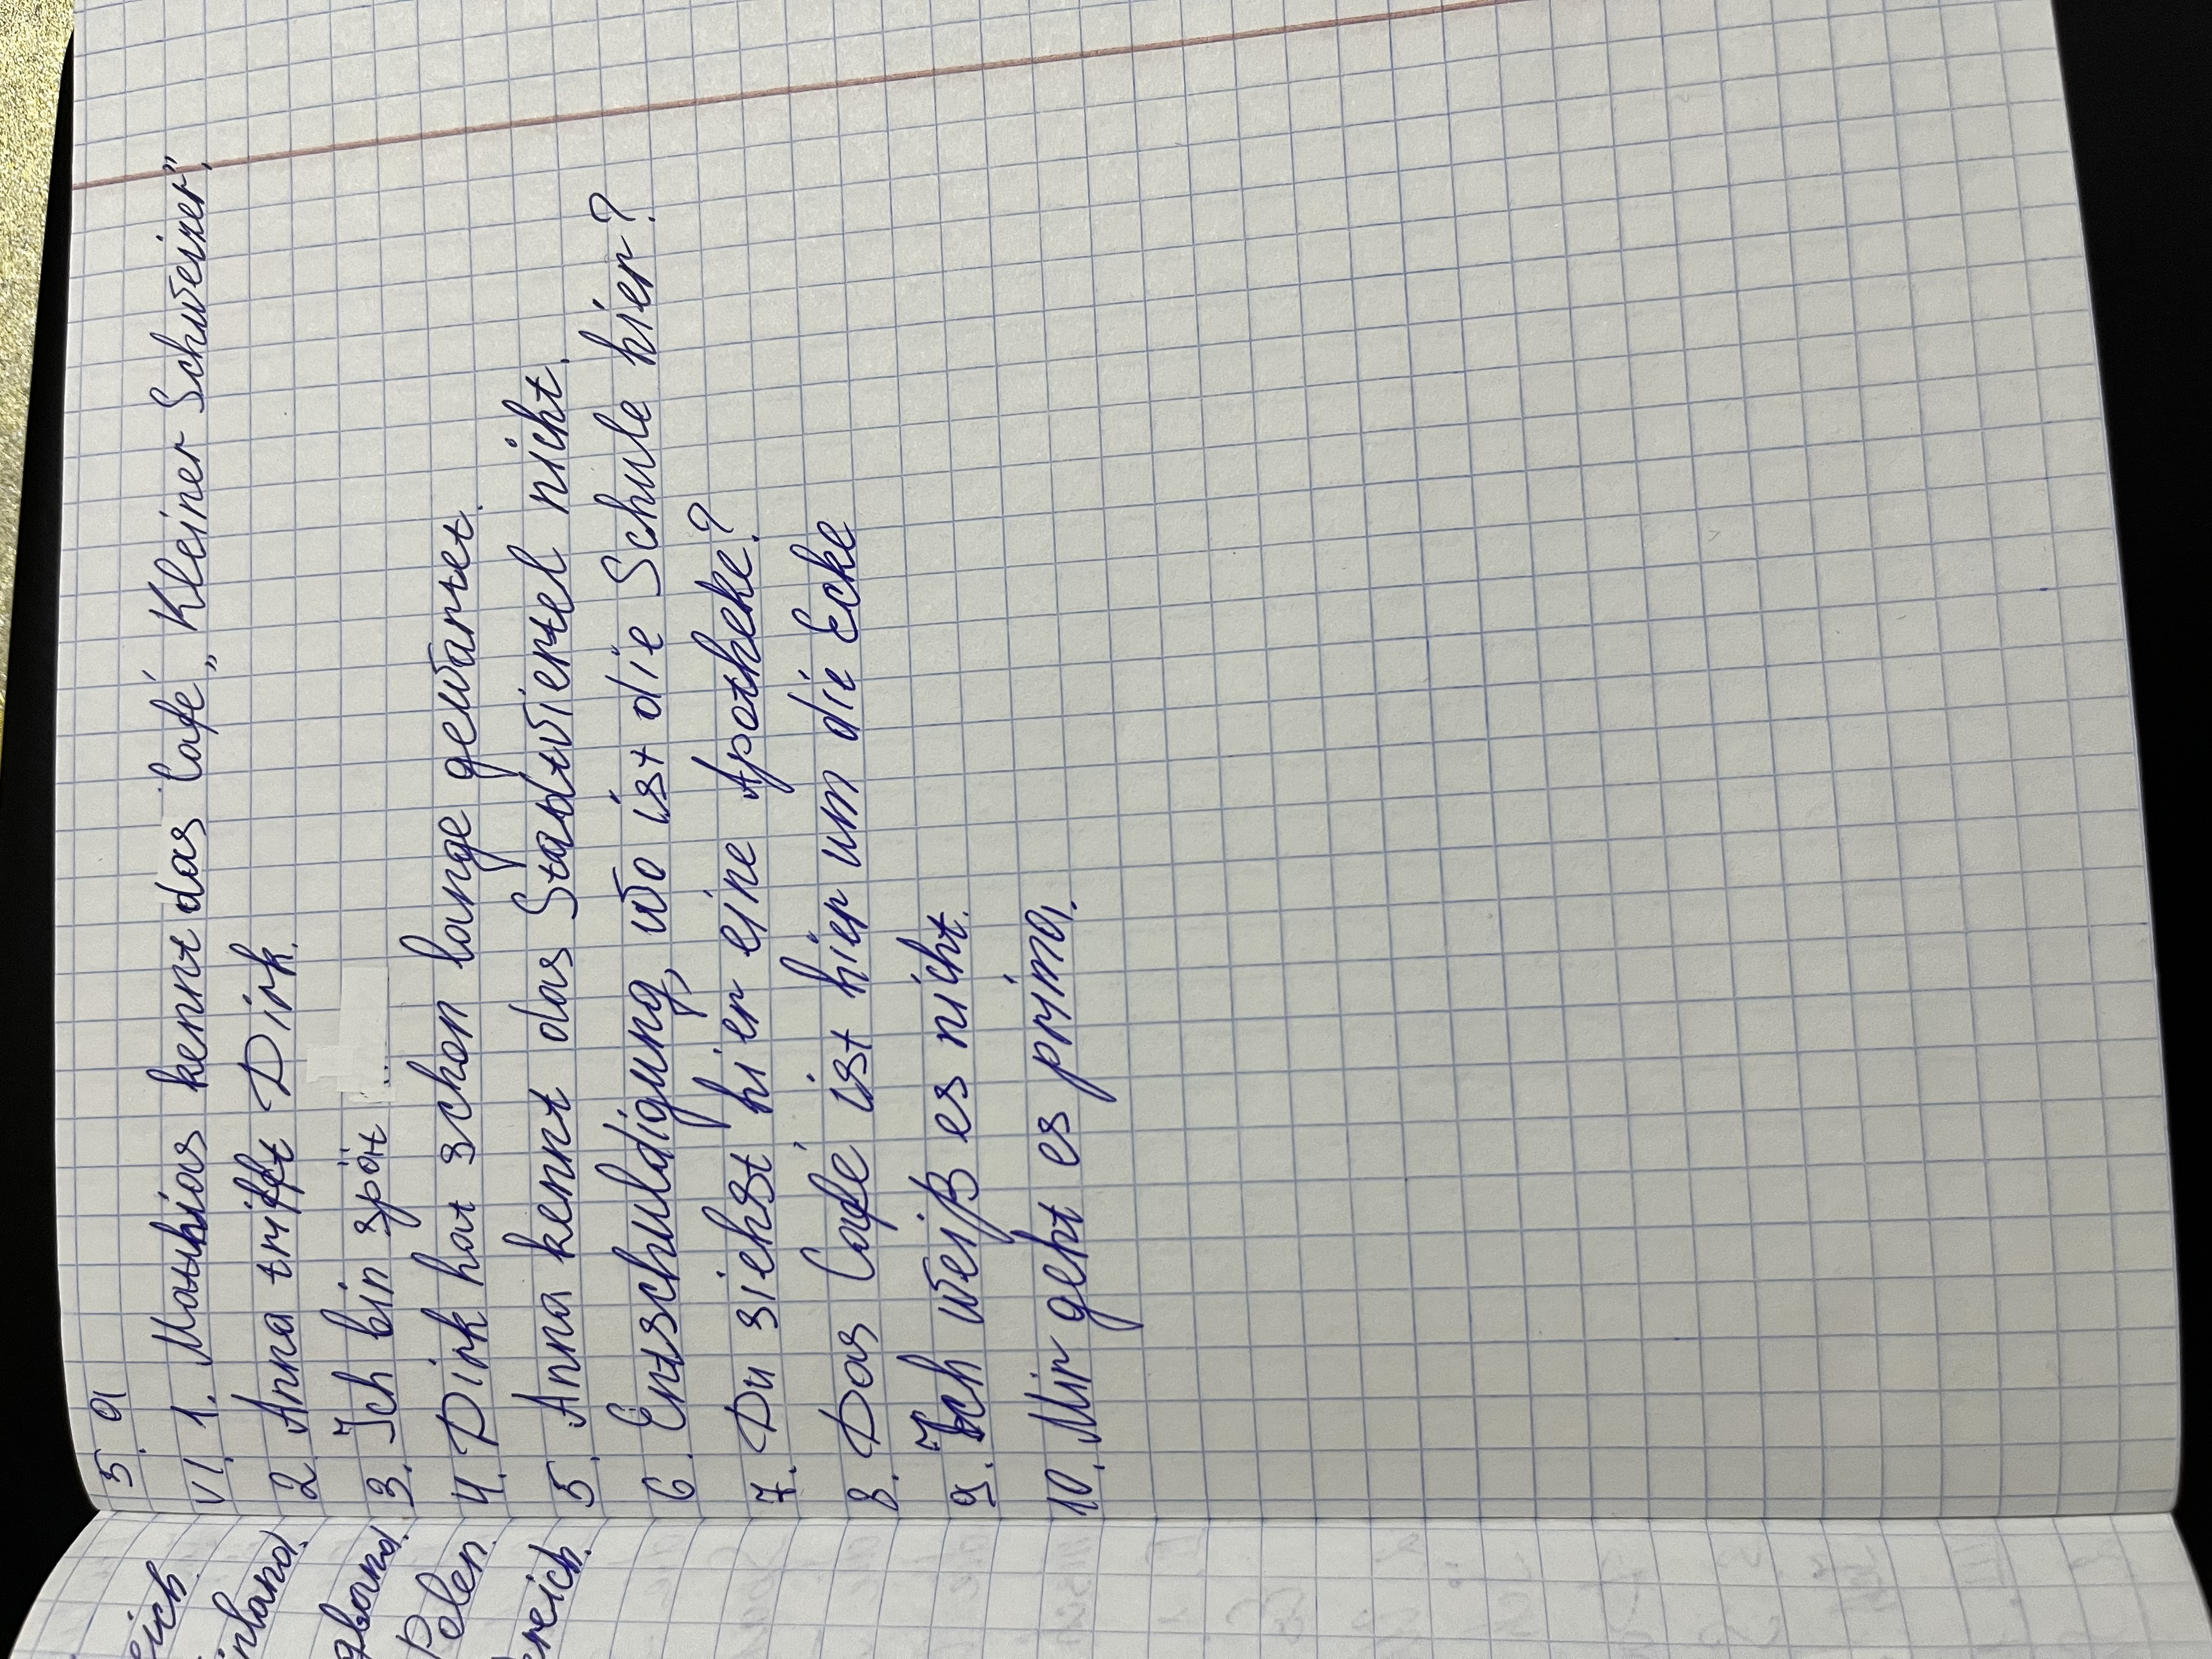 5. a
VI. 1. Mathias kennt das Café „Kleiner Schweizer".
2. Anna trifft Dirk.
3. Ich bin spät ..
4. Dirk hat schon lange gewartet.
5. Anna kennt das Stadtviertel nicht.
6. Entschuldigung, wo ist die Schule hier?
7. Du siehst hier eine Apotheke?
8. Das Café ist hier um die Ecke
9. Ich weiß es nicht.
10. Mir geht es prima.
eich.
inland.
gland.
Polen.
reich.